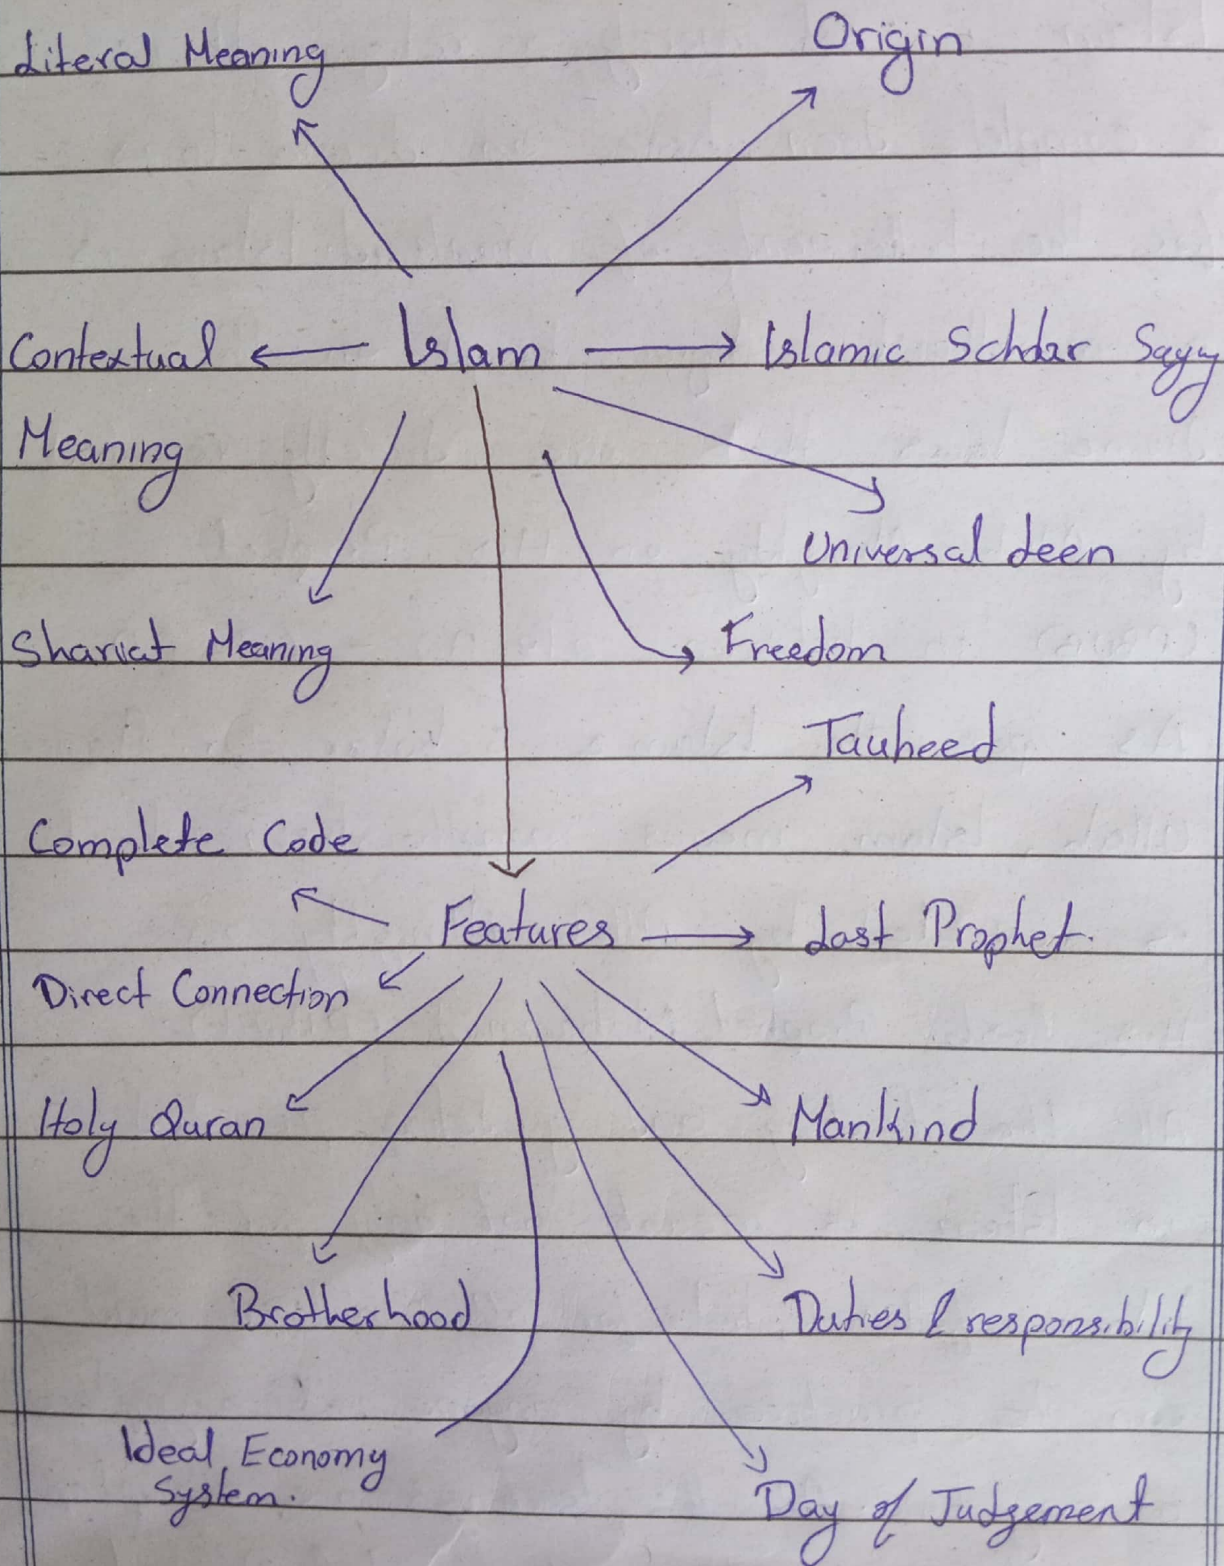 Literal Meaning
Origin
Contextual
Meaning
Islam
Islamic Scholar Sayy
Universal deen
Shariat Meaning
Freedom
Tauheed
Complete Code
Features
Last Prophet.
Direct Connection
Holy Quran
Mankind
Brotherhood
Duties & responsibility
Ideal Economy
System.
Day of Judgement